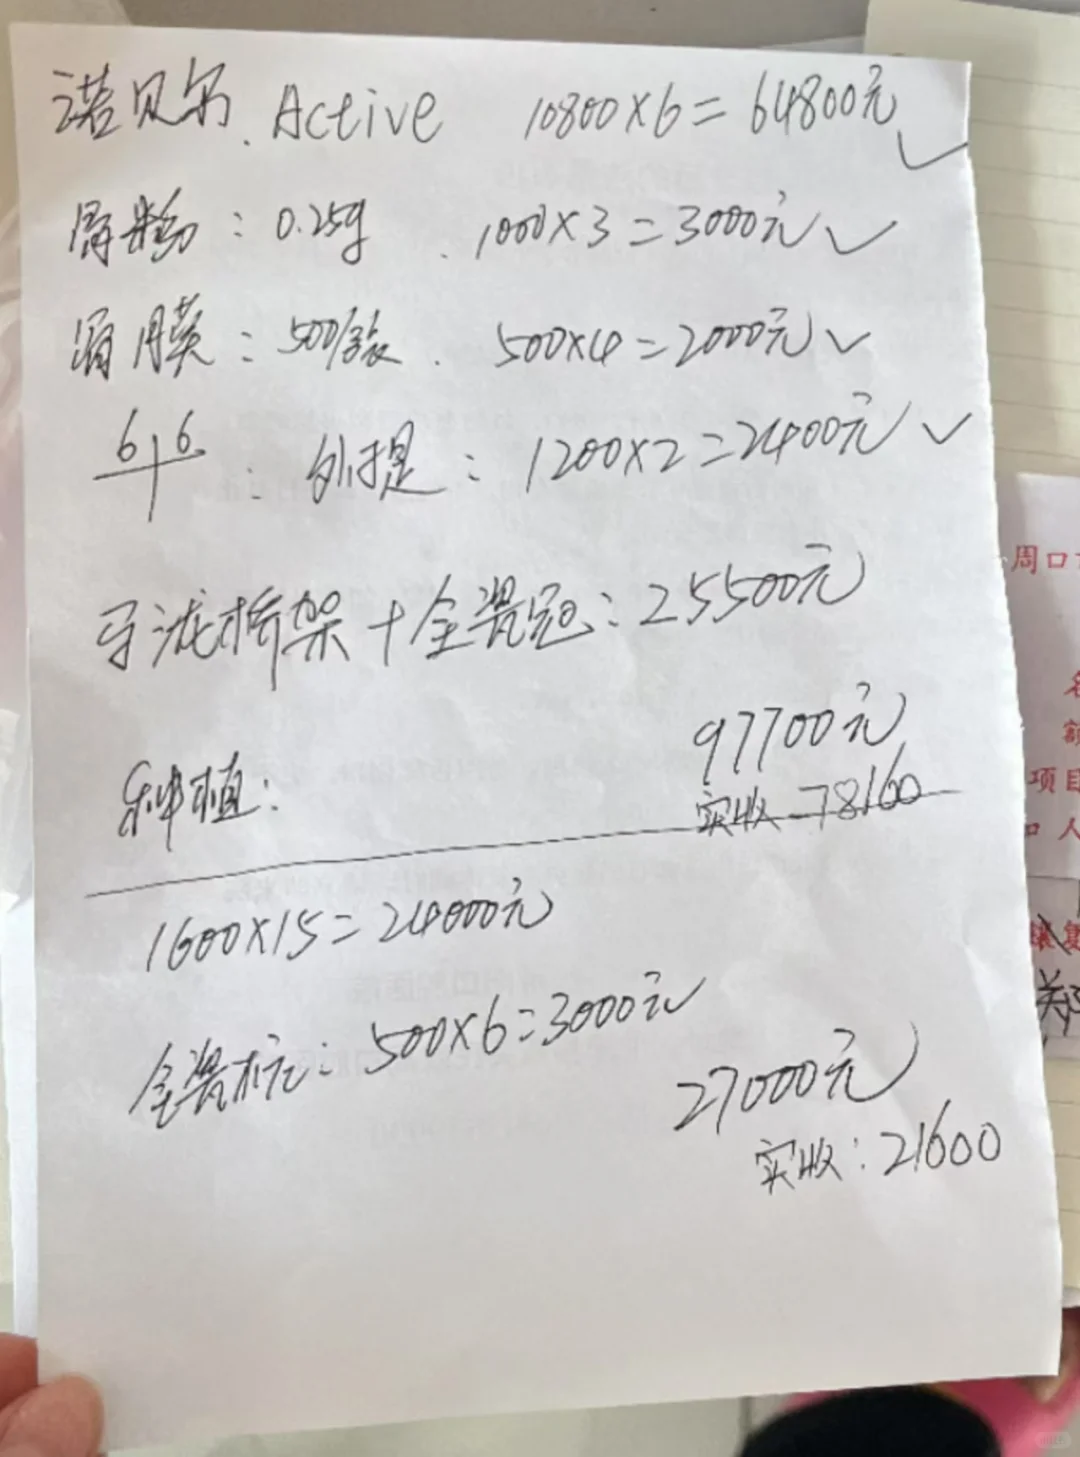 诺贝尔. Active 10800×6=64800元 ✓
骨粉: 0.25g. 1000×3=3000元 ✓
膜: 500/张. 500×4=2000元 ✓
6 6: 外提: 1200×2=2400元 ✓
牙泷桥架+全瓷冠: 25500元
97700元
种植:
实收 78160
1600×15=24000元
全瓷桩: 500×6=3000元
27000元
实收: 21600
周口
名
额
项目
人